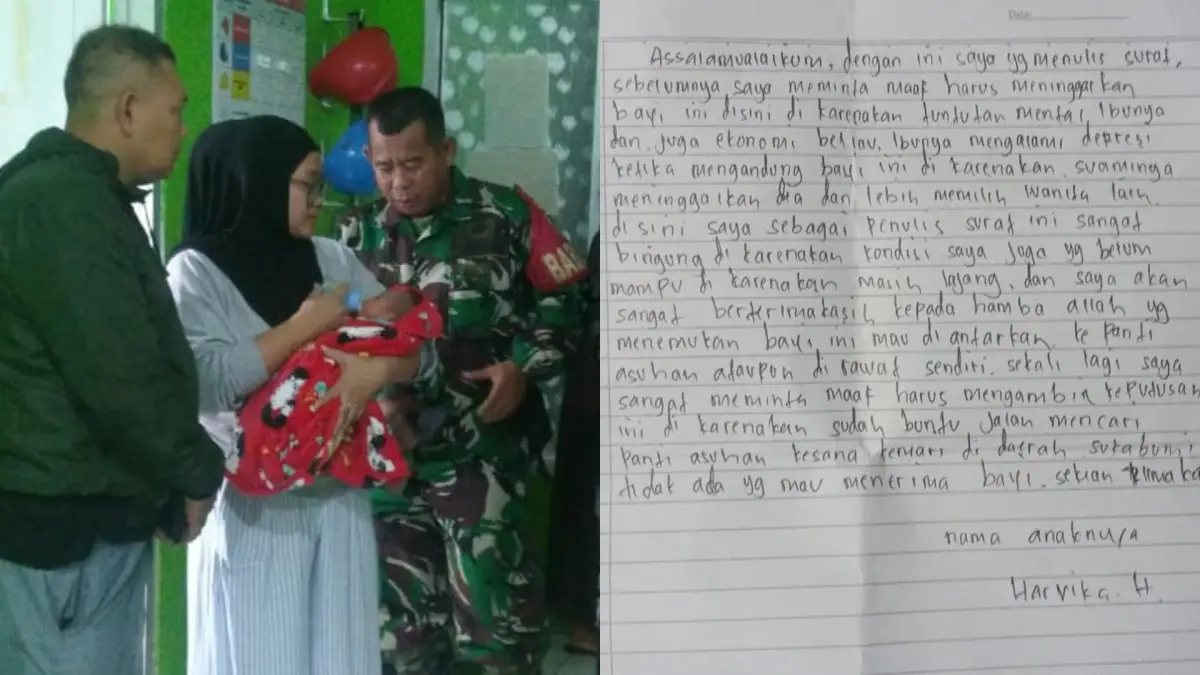 BA
Date:
Assalamualaikum, dengan ini saya yg menulis surat,
sebelumnya saya meminta maaf harus meninggalkan
bayi ini disini di karenakan tuntutan mental Ibunya
dan juga ekonomi beliau. Ibunya mengalami depresi
ketika mengandung bayi ini di karenakan suaminya
meninggalkan dia dan lebih memilih wanita lain
disini saya sebagai penulis surat ini sangat
bingung di karenakan kondisi saya juga yg belum
mampu di karenakan masih lajang, dan saya akan
sangat berterimakasih kepada hamba allah yg
menemukan bayi ini mau di antarkan ke panti
asuhan ataupun di rawat sendiri. sekali lagi saya
sangat meminta maaf harus mengambil keputusan
ini di karenakan sudah buntu jalan mencari
panti asuhan kesana kemari di daerah sukabumi
tidak ada yg mau menerima bayi. sekian
nama anaknya
Harvika. H.